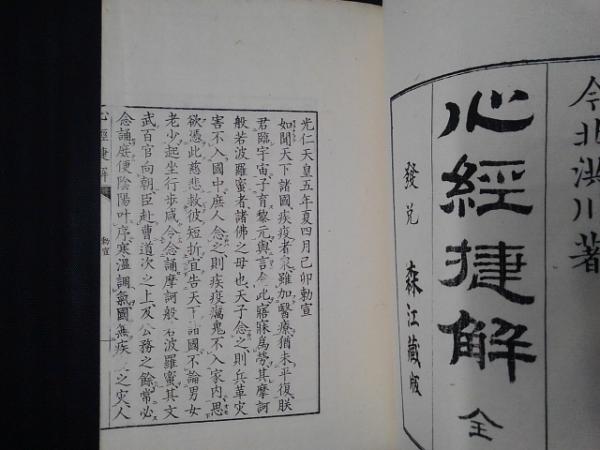 今北洪川著
心經捷解 全
發兌 森江藏版
光仁天皇五年夏四月己卯勅宣
如聞天下諸國疾疫者衆雖加醫療猶未平復朕
君臨宇宙子育黎元興言念此寤寐爲勞其摩訶
般若波羅蜜者諸佛之母也天子念之則兵革灾
害不入國中庶人念之則疾疫癘鬼不入家内思
欲憑此慈悲救彼短折宜告天下諸國不論男女
老少起坐行步咸令念誦摩訶般若波羅蜜其文
武百官向朝臣赴曹道次之上及公務之餘常必
念誦庶使陰陽叶序寒溫調氣國無疾 之灾人
心經捷解 勅宣 一